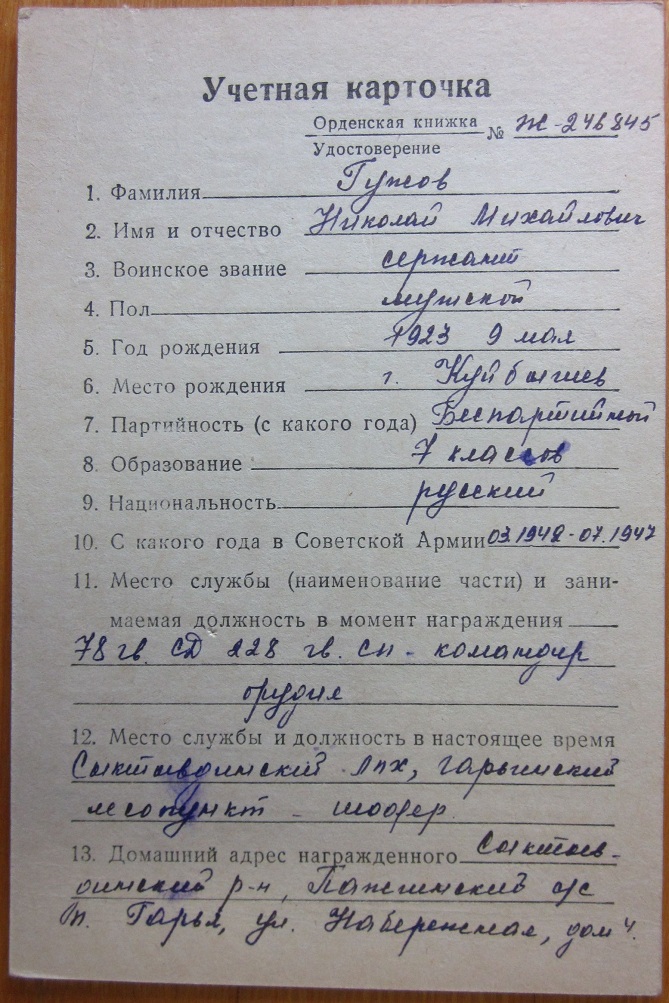 Учетная карточка
Орденская книжка № Ж-246845
Удостоверение
1. Фамилия Гужов
2. Имя и отчество Николай Михайлович
3. Воинское звание сержант
4. Пол мужской
5. Год рождения 1923 9 мая
6. Место рождения г. Куйбышев
7. Партийность (с какого года) Беспартийный
8. Образование 7 классов
9. Национальность русский
10. С какого года в Советской Армии 03.1942-07.1947
11. Место службы (наименование части) и зани-
маемая должность в момент награждения
78 гв. СД 228 гв. сп - командир
орудия
12. Место службы и должность в настоящее время
Сыктывдинский лпх, гарьинский
лесопункт - шофер.
13. Домашний адрес награжденного Сыктыв-
динский р-н, Пажгинский с/с
п. Гарья, ул. Набережная, дом 4.